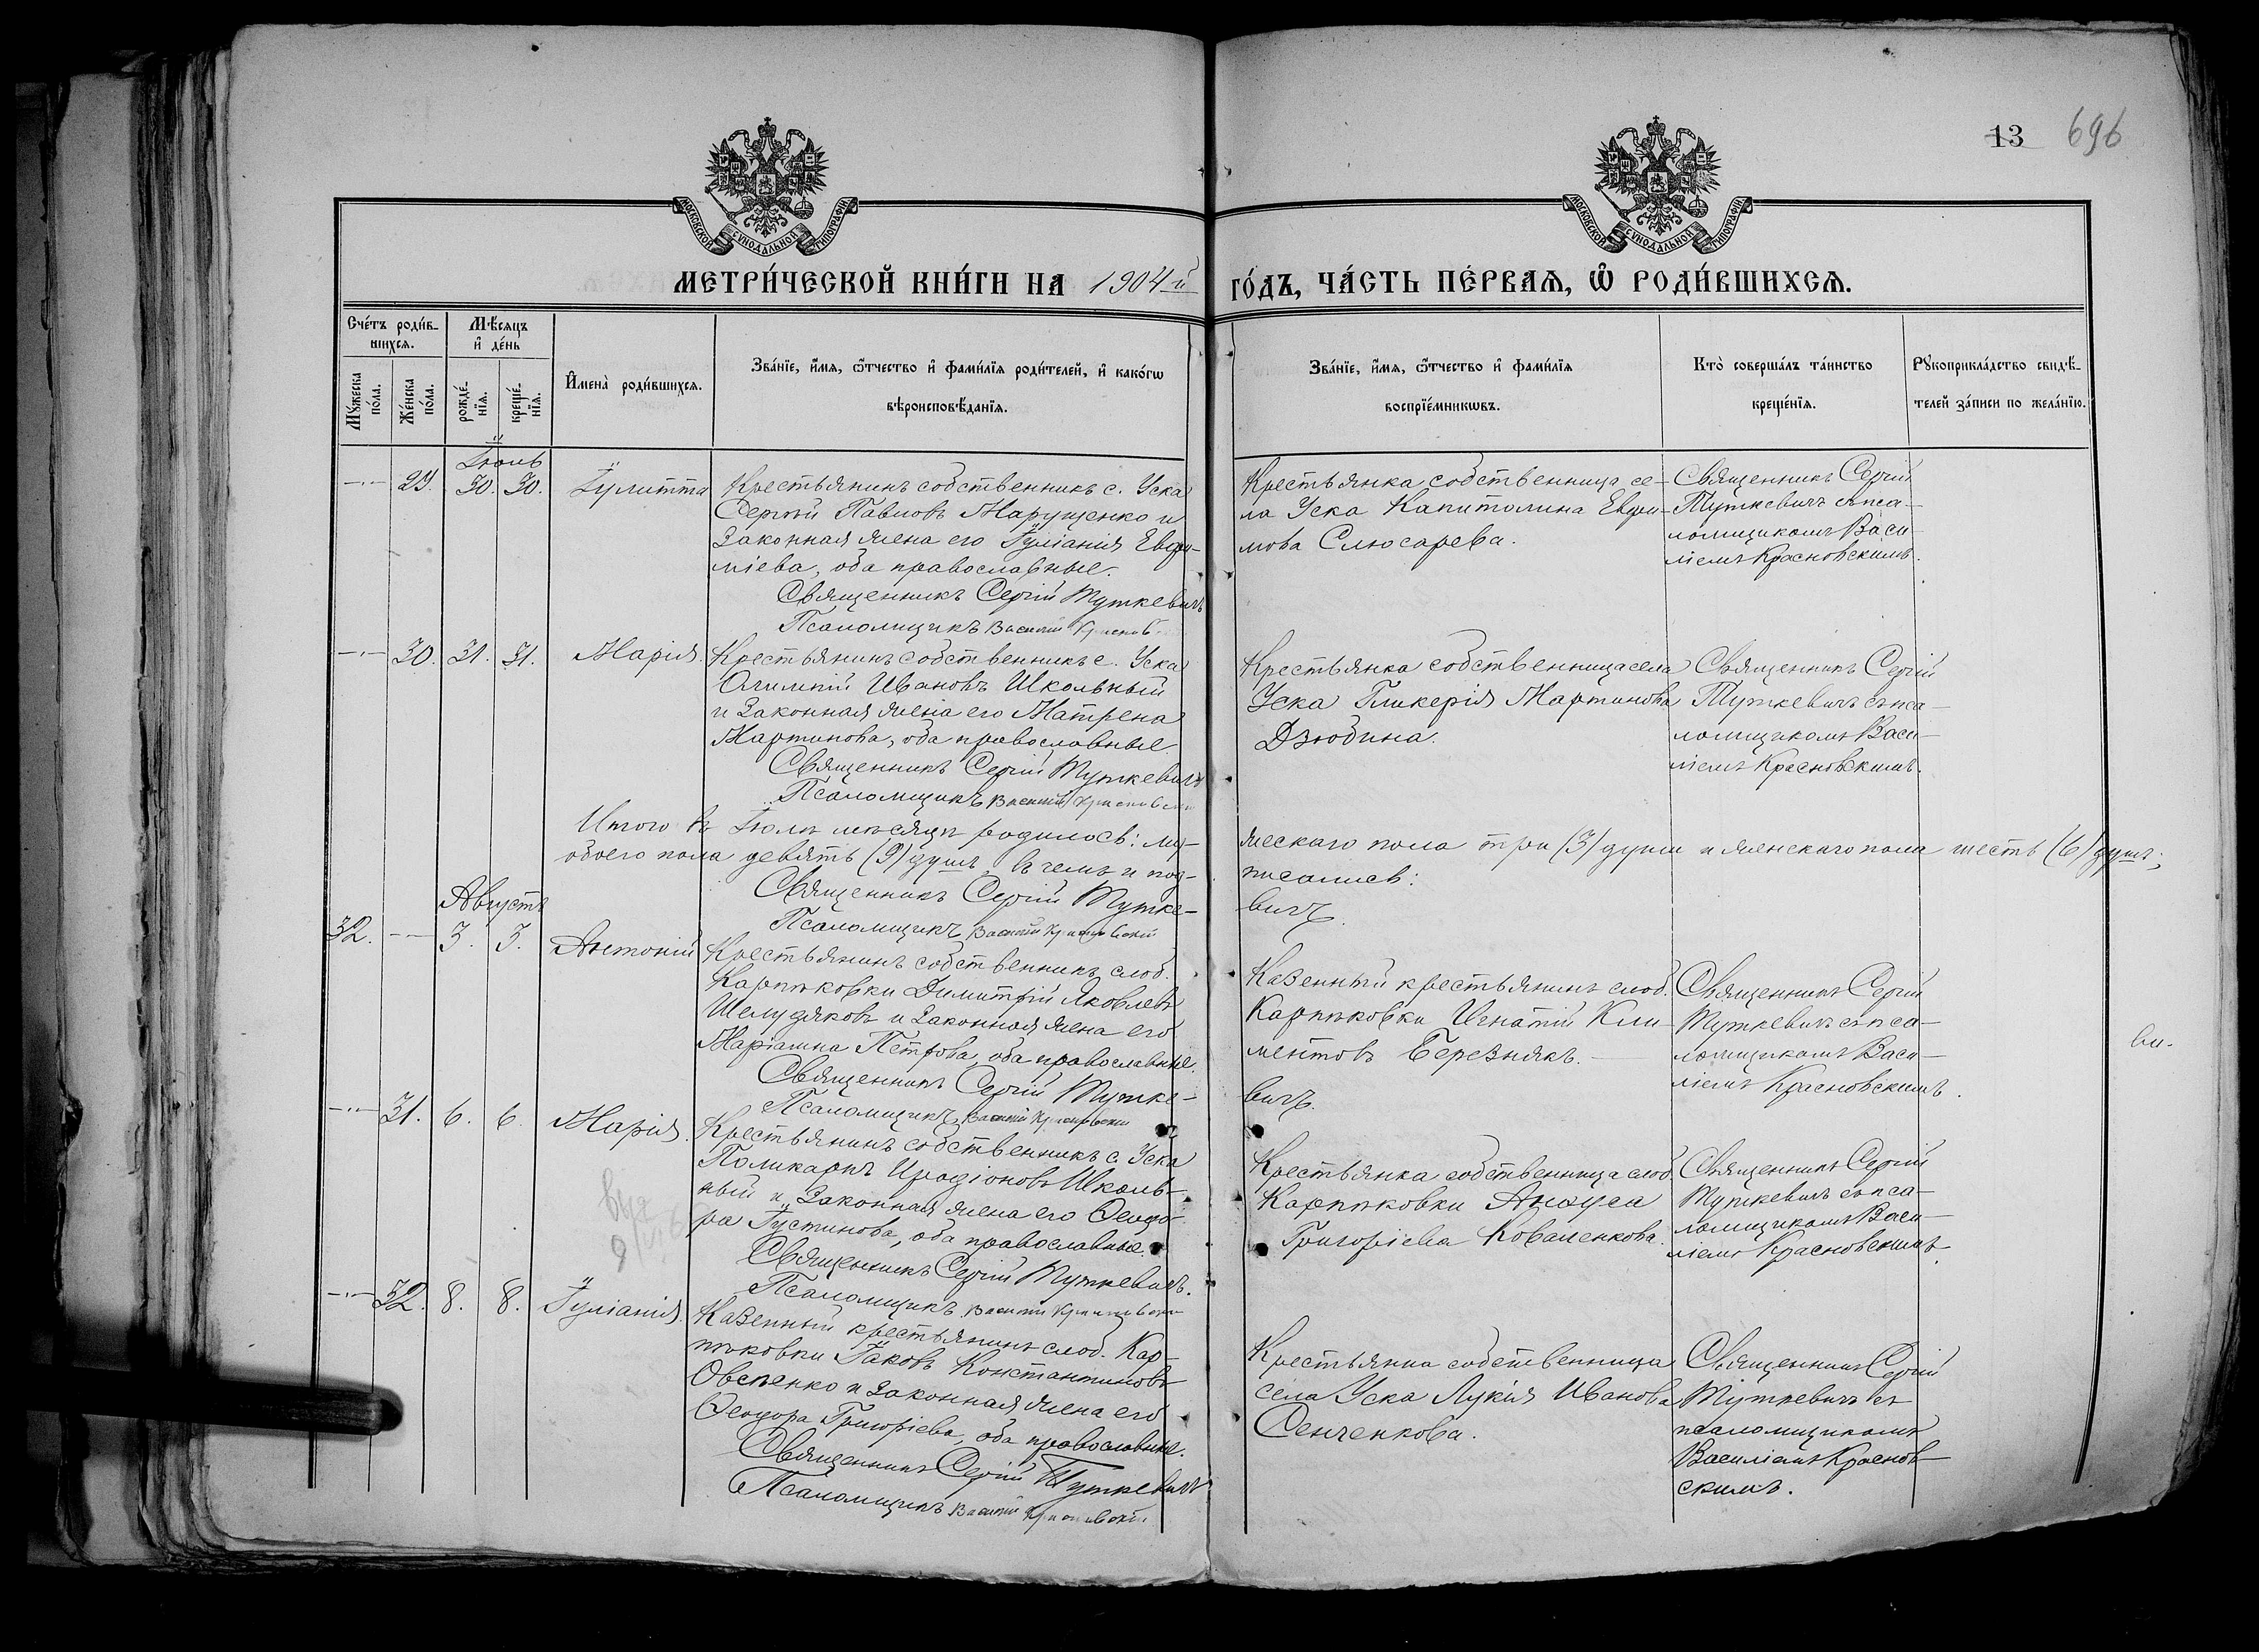 13 696
МОСКОВСКОЙ СѴНОДАЛЬНОЙ ТИПОГРАФІИ
МОСКОВСКОЙ СѴНОДАЛЬНОЙ ТИПОГРАФІИ
МЕТРИ́ЧЕСКОЙ КНИ́ГИ НА 1904й ГО́ДЪ, ЧА́СТЬ ПЕ́РВАЯ, Ѡ РОДИ́ВШИХСЯ.
Сче́тъ роди́в-
шихся.
Мѣсяцъ
и де́нь
Му́жеска
по́ла.
Же́нска
по́ла.
рожде́-
нїя.
креще́-
нїя.
Имена̀ роди́вшихся.
Зва́нїе, имя, ѻтчество и фами́лїя роди́телей, и како́гѡ
вѣроисповѣданїя.
Зва́нїе, имя, ѻтчество и фами́лїя
воспрїе́мникѡвъ.
Кто̀ соверша́лъ та́инство
креще́нїя.
Рꙋкоприкла́дство свидѣ-
телей за́писи по жела́нїю.
Іюль
29. 30. 30. Іулитта
Крестьянинъ собственникъ с. Уска
Сергѣй Павловъ Марущенко и
законная жена его Іуліанія Евфи-
міева, оба православные.
Священникъ Сергій Туткевичъ
Псаломщикъ Василій
Крестьянка собственница се-
ла Уска Капитолина Евфи-
мова Слюсарева.
Священникъ Сергій
Туткевичъ съ пса-
ломщикомъ Васи-
ліемъ Красновскимъ.
30. 31. 31. Марія.
Крестьянинъ собственникъ с. Уска
Олимпій Ивановъ Школьный
и законная жена его Матрена
Мартинова, оба православные
Священникъ Сергій Туткевичъ
Псаломщикъ Василій Красновскій
Крестьянка собственница села
Уска Гликерія Мартинова
Дзюбина.
Священникъ Сергій
Туткевичъ съ пса-
ломщикомъ Васи-
ліемъ Красновскимъ.
Итого въ Іюлѣ мѣсяцѣ родилось: му-жескаго пола три (3) души и женскаго пола шесть (6) душъ;
обоего пола девять (9) душъ, въ чемъ и под-писались:
Священникъ Сергій Туткевичъ.
Псаломщикъ Василій Красновскій
Августъ
32. 3. 3. Антоній
Крестьянинъ собственникъ слоб.
Карпѣковки Димитрій Яковлевъ
Шелудяковъ и законная жена его
Маріамна Петрова, оба православные.
Священникъ Сергій Туткевичъ.
Псаломщикъ Василій Красновскій
Казенный крестьянинъ слоб.
Карпѣковки Игнатій Кли-
ментовъ Березнякъ.
Священникъ Сергій
Туткевичъ съ пса-
ломщикомъ Васи-
ліемъ Красновскимъ.
31. 6. 6. Марія.
Крестьянинъ собственникъ с. Уска
Поликарпъ Иродіоновъ Школь-
ный и законная жена его Феодо-
ра Іустинова, оба православные.
Священникъ Сергій Туткевичъ.
Псаломщикъ Василій Красновскій
Крестьянка собственница слоб.
Карпѣковки Анжуса
Григоріева Коваленкова.
Священникъ Сергій
Туткевичъ съ пса-
ломщикомъ Васи-
ліемъ Красновскимъ.
32. 8. 8. Іуліанія.
Казенный крестьянинъ слоб. Кар-
пѣковки Іаковъ Константиновъ
Овсѣенко и законная жена его
Феодора Григоріева, оба православные.
Священникъ Сергій Туткевичъ
Псаломщикъ Василій Красновскій
Крестьянка собственница
села Уска Лукія Иванова
Сенченкова.
Священникъ Сергій
Туткевичъ съ
псаломщикомъ
Василіемъ Краснов-
скимъ.